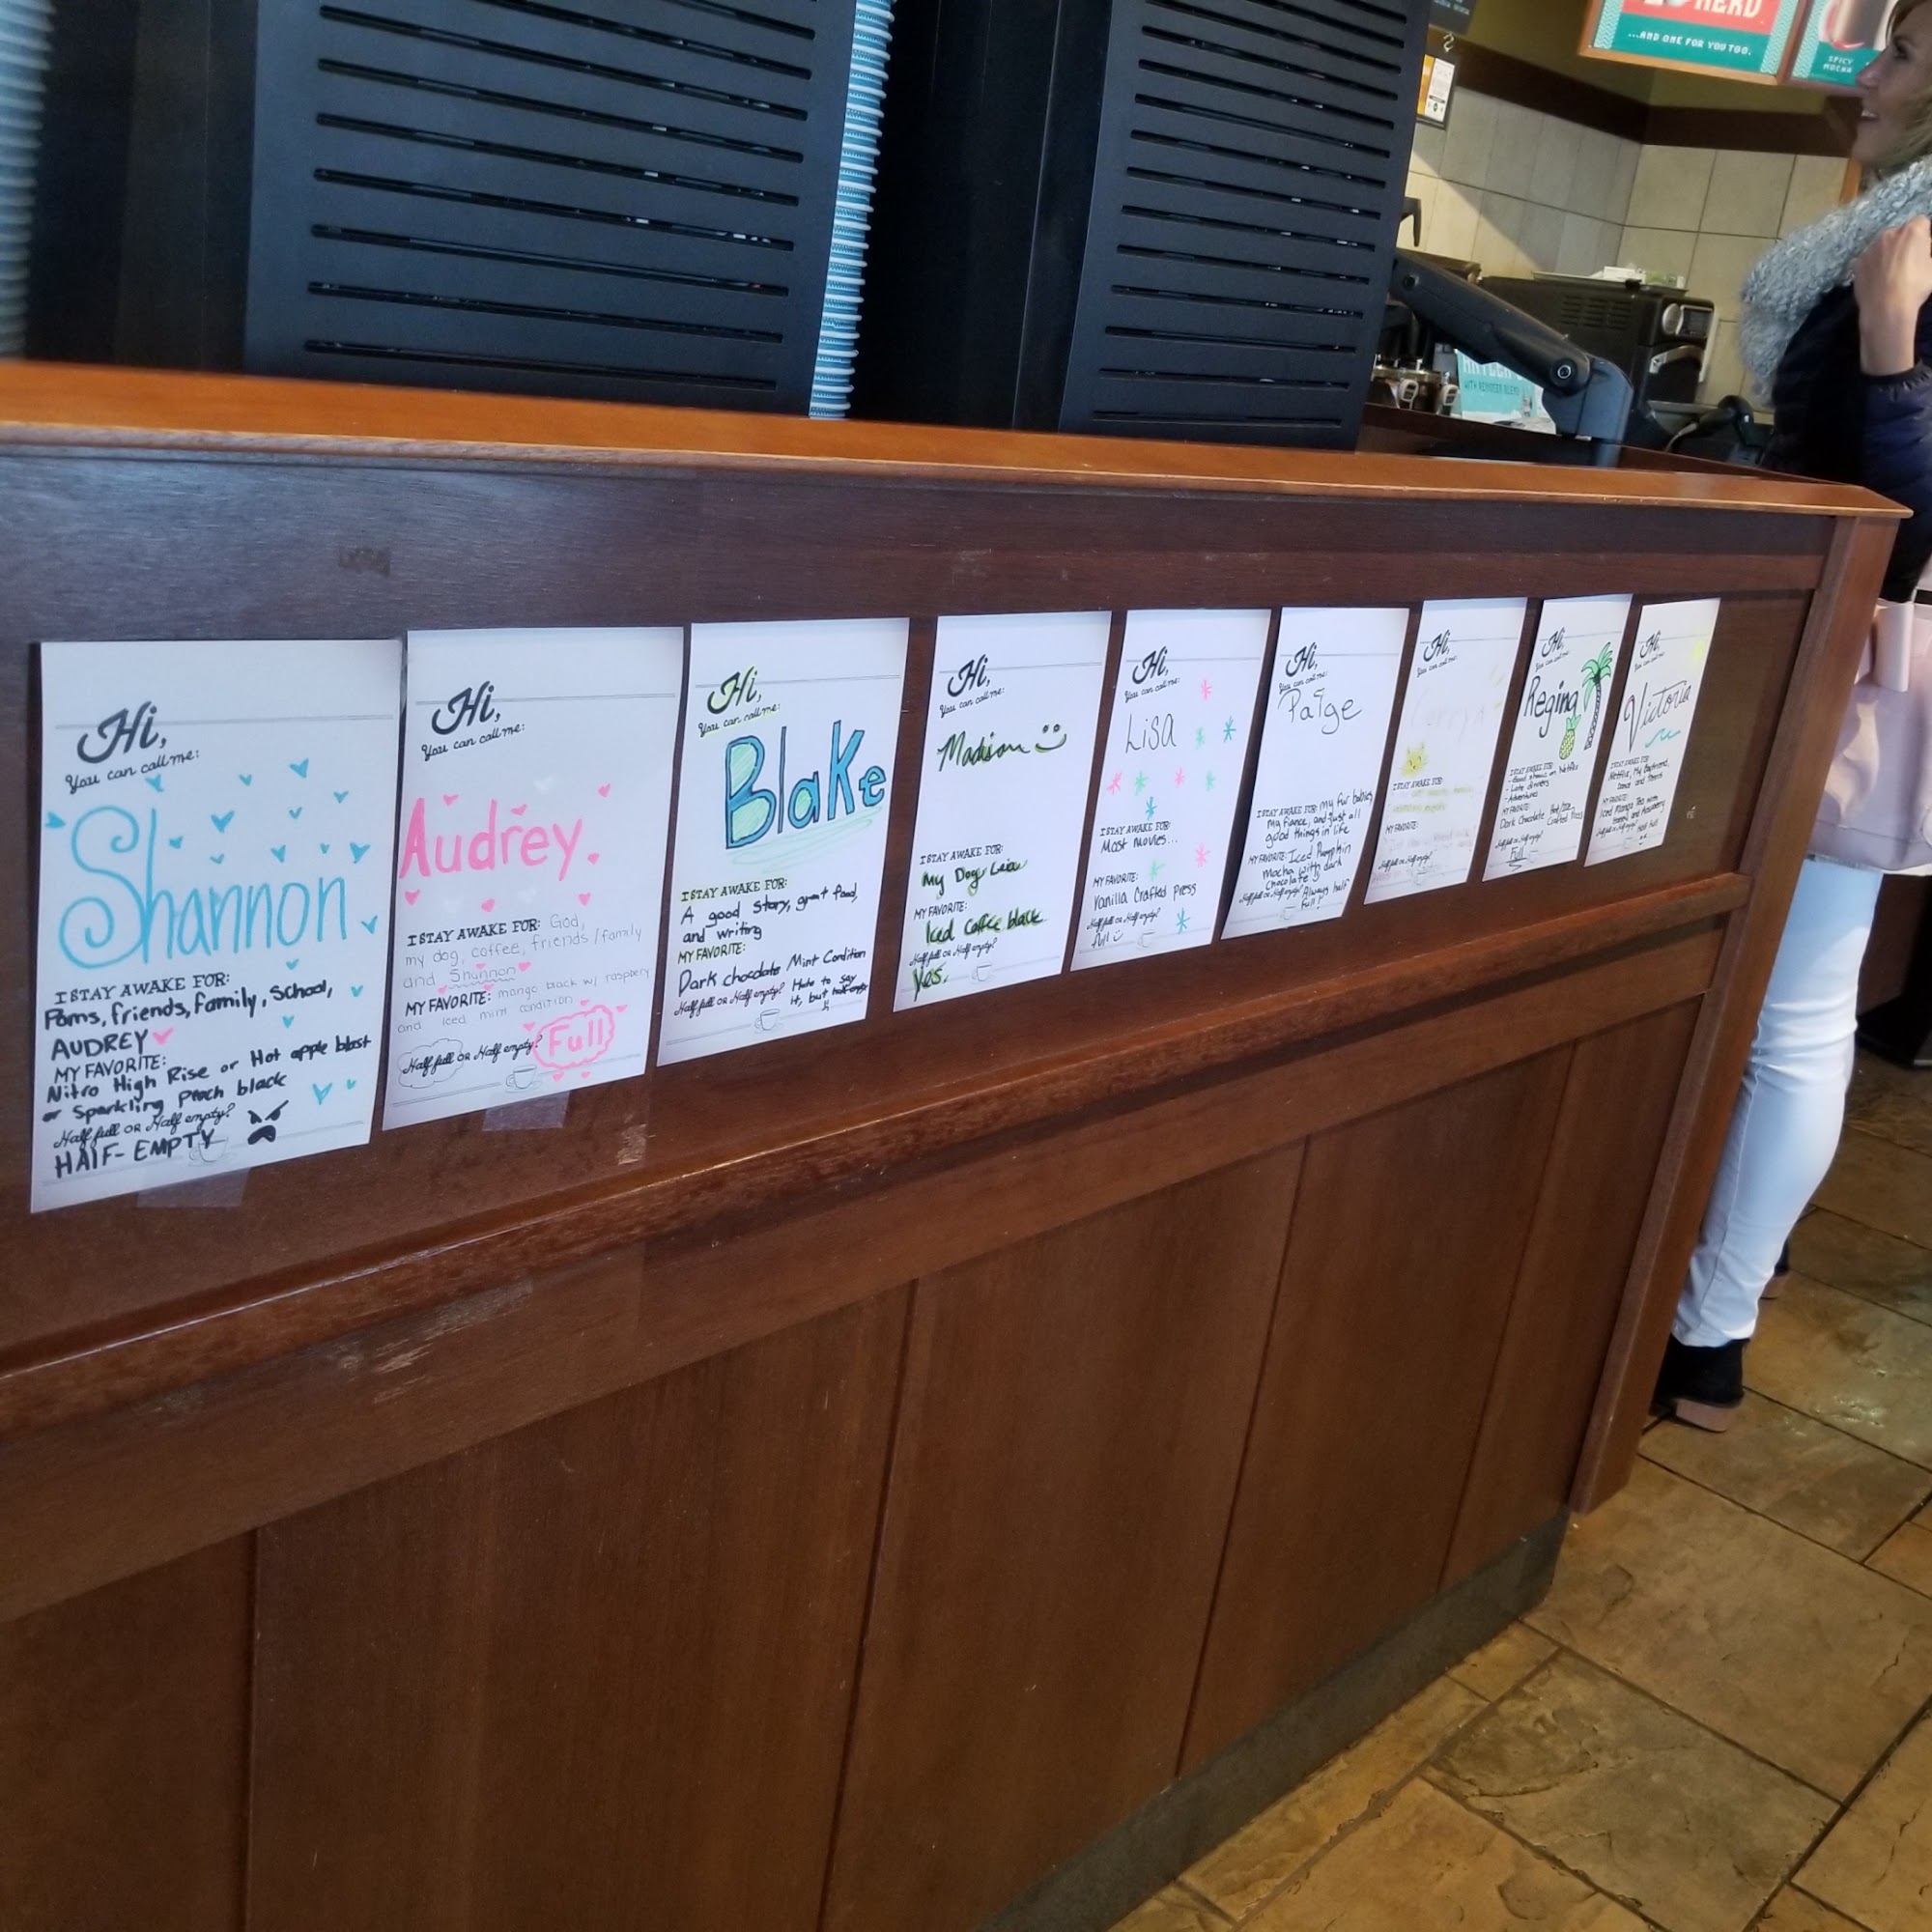 HERD
...AND ONE FOR YOU TOO.
SPICY
MOCHA
WITH REINDEER BLEND
Hi,
You can call me:
Shannon
I STAY AWAKE FOR:
Poms, friends, family, School,
AUDREY
MY FAVORITE:
Nitro High Rise or Hot apple blast
or Sparkling Peach black
Half full OR Half empty?
HAlF-EMPTY
Hi,
You can call me:
Audrey
I STAY AWAKE FOR: God,
my dog, coffee, friends/family
and Shannon
MY FAVORITE: mango black w/ raspberry
and iced mint condition
Half full OR Half empty? Full
Hi,
You can call me:
Blake
I STAY AWAKE FOR:
A good story, great food,
and writing
MY FAVORITE:
Dark chocolate Mint Condition
Half full OR Half empty? Hate to say
it, but half empty
Hi,
You can call me:
Madison
I STAY AWAKE FOR:
My Dog Leia
MY FAVORITE:
Iced Coffee black
Half full OR Half empty?
Yes.
Hi,
You can call me:
Lisa
I STAY AWAKE FOR:
Most movies...
MY FAVORITE:
Vanilla Crafted press
Half full OR Half empty?
full
Hi,
You can call me:
Paige
I STAY AWAKE FOR: my fur babies
my fiance, and just all
good things in life
MY FAVORITE: Iced Pumpkin
Mocha with dark
chocolate
Half full OR Half empty? Always half
full!
Hi,
You can call me:
I STAY AWAKE FOR:
MY FAVORITE:
Half full OR Half empty?
Hi,
You can call me:
Regina
I STAY AWAKE FOR:
- Good shows on Netflix
- Late dinners
- Adventures
MY FAVORITE:
Dark Chocolate Hot/Ice
Crafted Press
Half full OR Half empty?
Full
Hi,
You can call me:
Victoria
I STAY AWAKE FOR:
Netflix, My Boyfriend,
Dance and
MY FAVORITE:
Iced Mango Tea with
and Raspberry
Half full OR Half empty?
Half full